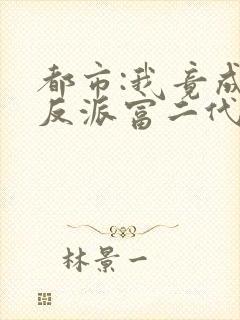 都市:我竟成
反派富二代
林景一